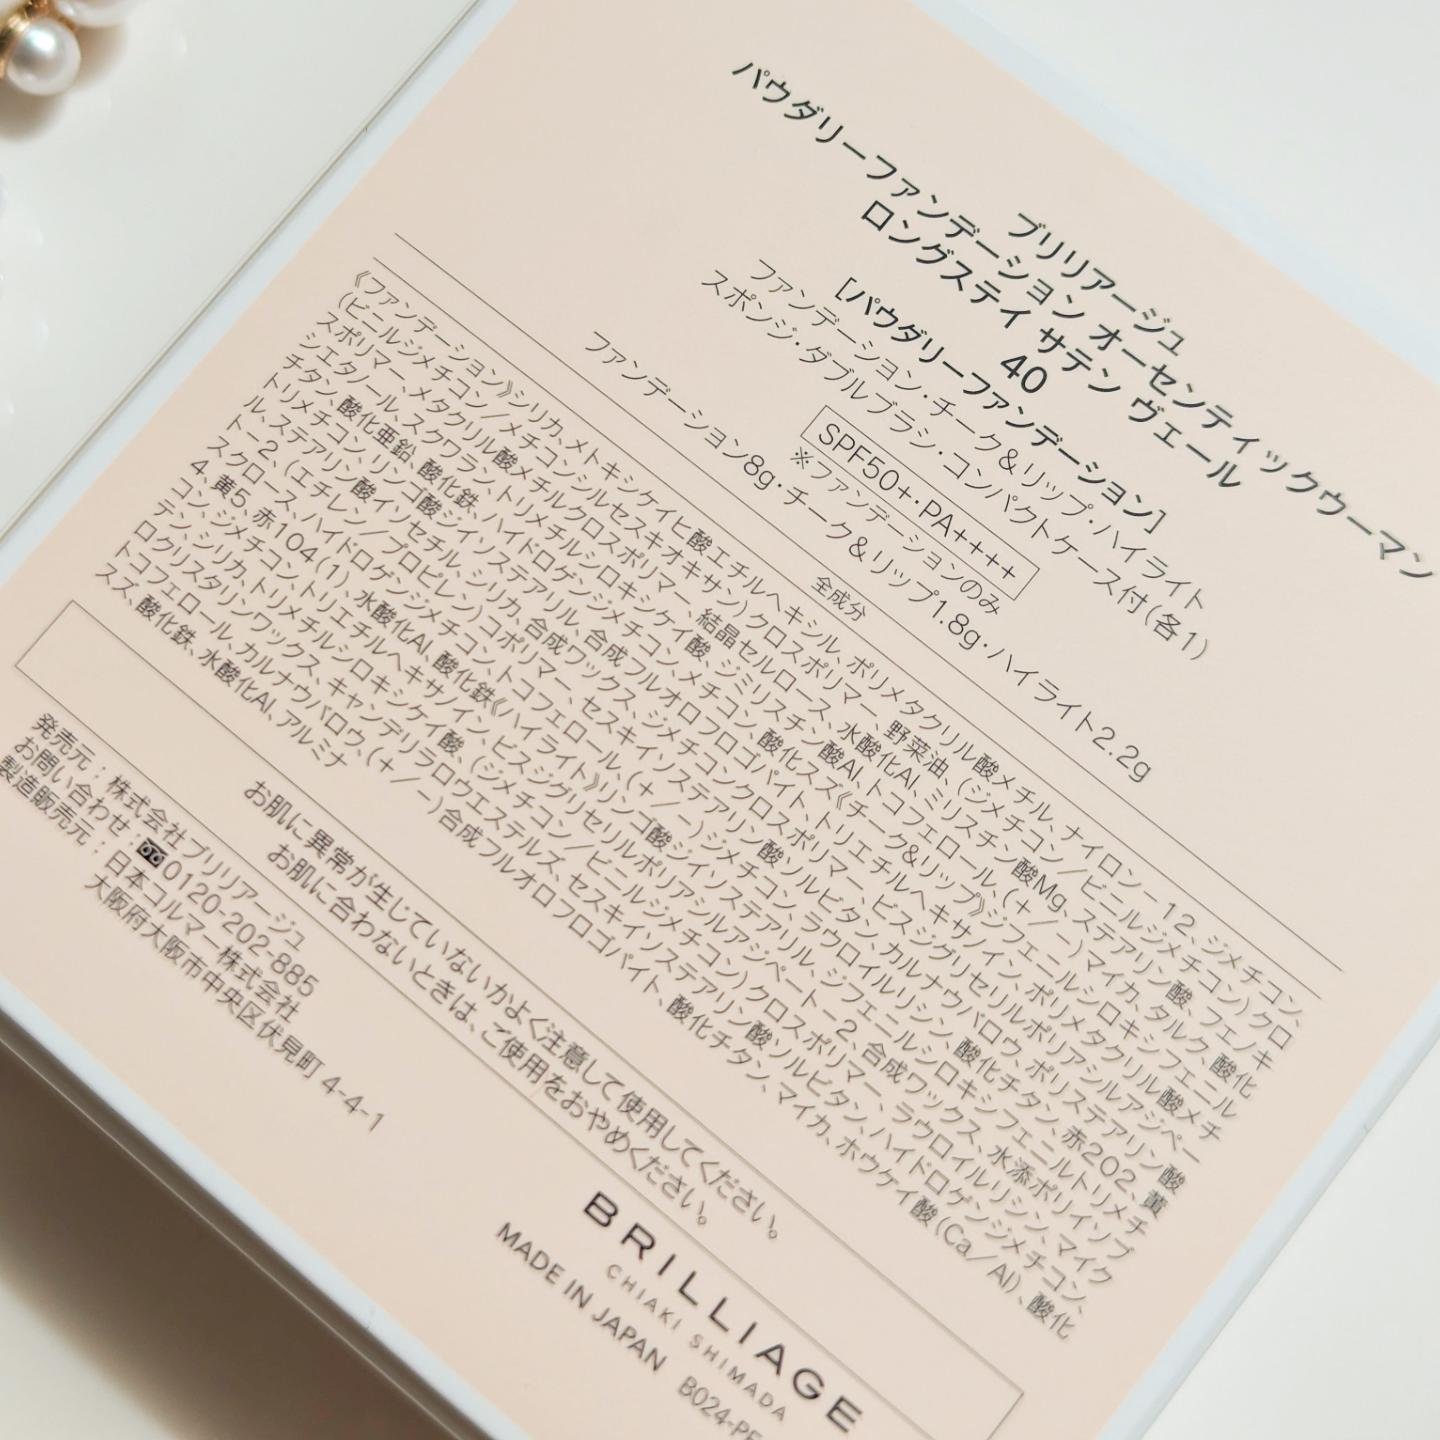 ブリリアージュ
パウダリーファンデーション オーセンティックウーマン
ロングステイ サテン ヴェール
40
[パウダリーファンデーション]
ファンデーション・チーク&リップ・ハイライト
スポンジ・ダブルブラシ・コンパクトケース付(各1)
SPF50+・PA++++
※ファンデーションのみ
ファンデーション8g・チーク&リップ1.8g・ハイライト2.2g
全成分
《ファンデーション》シリカ、メトキシケイヒ酸エチルヘキシル、ポリメタクリル酸メチル、ナイロン-12、ジメチコン、
(ビニルジメチコン/メチコンシルセスキオキサン)クロスポリマー、野菜油、(ジメチコン/ビニルジメチコン)クロ
スポリマー、メタクリル酸メチルクロスポリマー、結晶セルロース、水酸化Al、ミリスチン酸Mg、ステアリン酸、フェノキ
シエタノール、スクワラン、トリメチルシロキシケイ酸、ジミリスチン酸Al、トコフェロール、(+/-)マイカ、タルク、酸化
チタン、酸化亜鉛、酸化鉄、ハイドロゲンジメチコン、メチコン、酸化スズ《チーク&リップ》ジフェニルシロキシフェニル
トリメチコン、リンゴ酸ジイソステアリル、合成フルオロフロゴパイト、トリエチルヘキサノイン、ポリメタクリル酸メチ
ル、ステアリン酸イソセチル、シリカ、合成ワックス、ジメチコンクロスポリマー、ビスジグリセリルポリアシルアジペー
ト-2、(エチレン/プロピレン)コポリマー、セスキイソステアリン酸ソルビタン、カルナウバロウ、ポリステアリン酸
スクロース、ハイドロゲンジメチコン、トコフェロール、(+/-)ジメチコン、ラウロイルリシン、酸化チタン、赤202、黄
4、黄5、赤104(1)、水酸化Al、酸化鉄《ハイライト》リンゴ酸ジイソステアリル、ジフェニルシロキシフェニルトリメチ
コン、ジメチコン、トリエチルヘキサノイン、ビスジグリセリルポリアシルアジペート-2、合成ワックス、水添ポリイソブ
テン、シリカ、トリメチルシロキシケイ酸、(ジメチコン/ビニルジメチコン)クロスポリマー、ラウロイルリシン、マイク
ロクリスタリンワックス、キャンデリラロウエステルズ、セスキイソステアリン酸ソルビタン、ハイドロゲンジメチコン、
トコフェロール、カルナウバロウ、(+/-)合成フルオロフロゴパイト、酸化チタン、マイカ、ホウケイ酸(Ca/Al)、酸化
スズ、酸化鉄、水酸化Al、アルミナ
お肌に異常が生じていないかよく注意して使用してください。
お肌に合わないときは、ご使用をおやめください。
発売元:株式会社ブリリアージュ
お問い合わせ:0120-202-885
製造販売元:日本コルマー株式会社
大阪府大阪市中央区伏見町 4-4-1
BRILLIAGE
CHIAKI SHIMADA
MADE IN JAPAN B024-PF